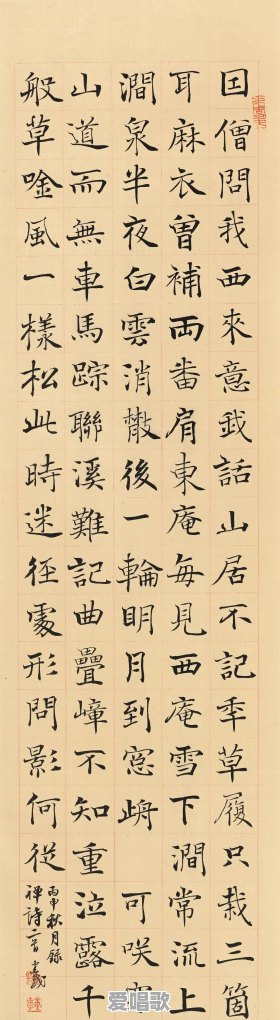 囙僧問我西來意我話山居不記秊草履只栽三箇
耳麻衣曾補兩番肩東庵每見西庵雪下澗常流上
澗泉半夜白雲消散後一輪明月到窓歬 可咲寒
山道而無車馬踪聯溪難記曲疊嶂不知重泣露千
般草唫風一樣松此時迷徑處形問影何從
丙申秋月錄
禪詩二首
爱唱歌